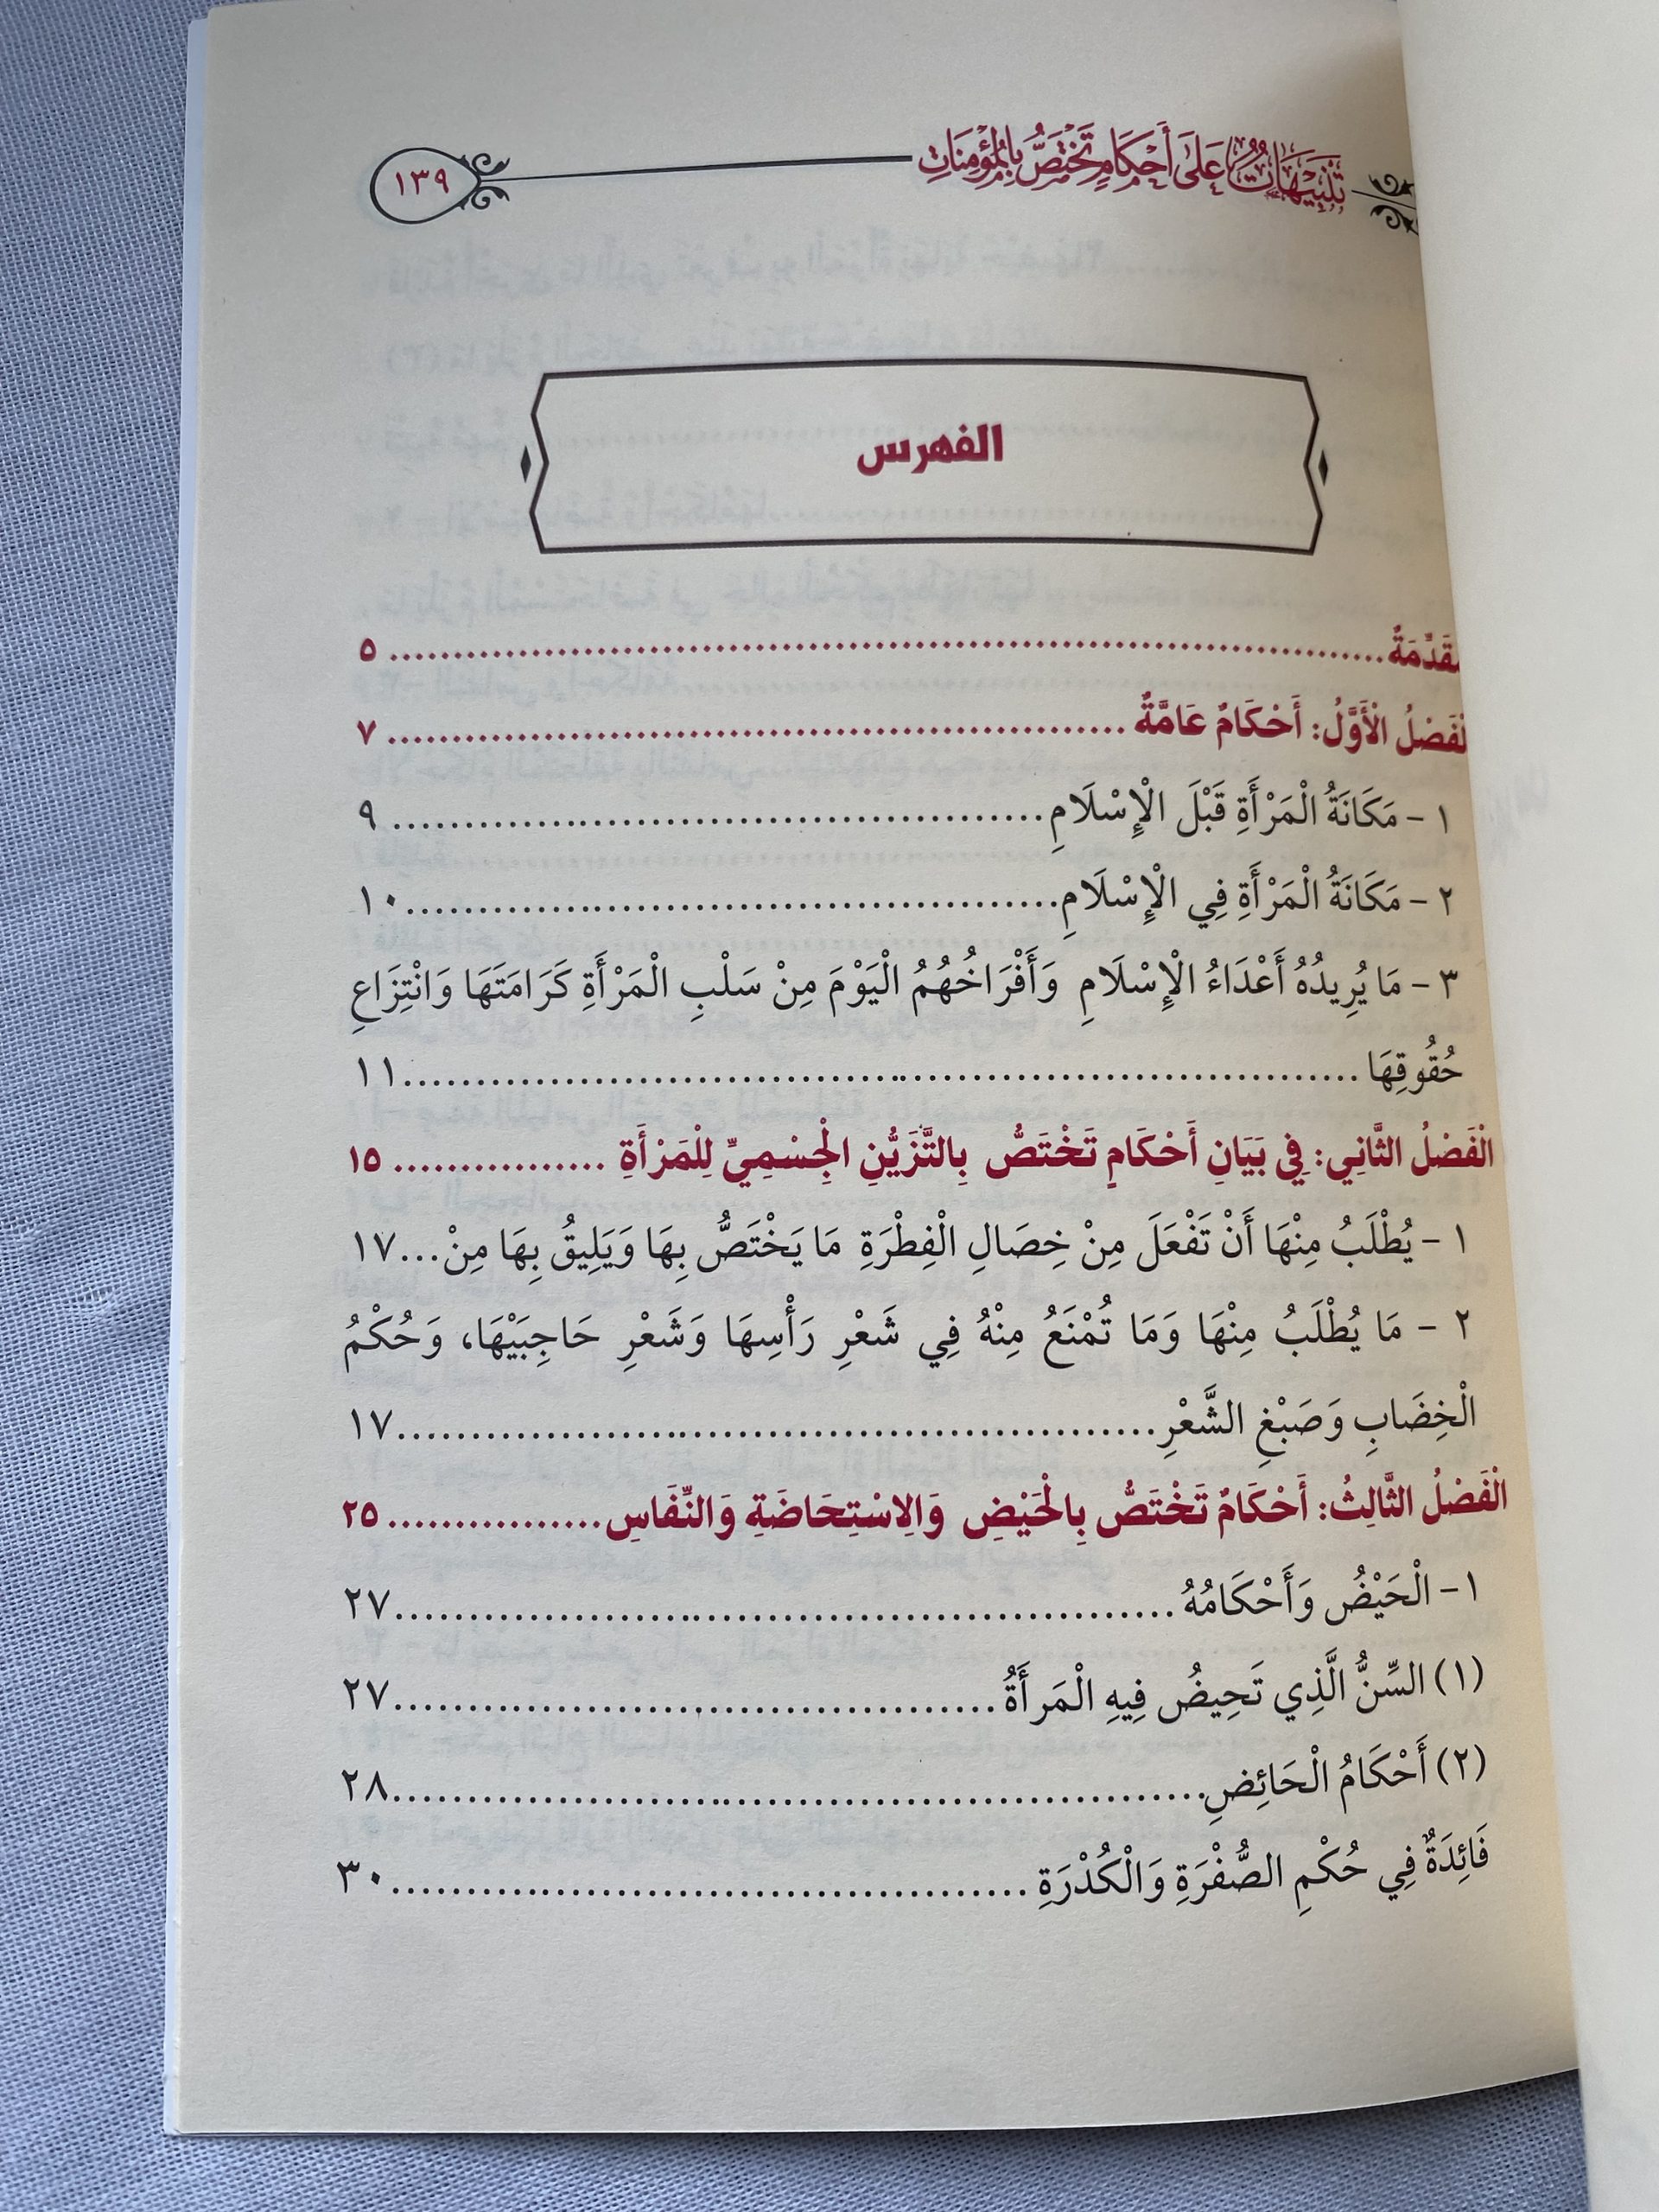 تَنْبِيهَاتٌ عَلَى أَحْكَامٍ تَخْتَصُّ بِالْمُؤْمِنَاتِ ١٣٩
الفهرس
مُقَدِّمَةٌ ........ ٥
الْفَصْلُ الْأَوَّلُ: أَحْكَامٌ عَامَّةٌ ........ ٧
١ - مَكَانَةُ الْمَرْأَةِ قَبْلَ الْإِسْلَامِ ........ ٩
٢ - مَكَانَةُ الْمَرْأَةِ فِي الْإِسْلَامِ ........ ١٠
٣ - مَا يُرِيدُهُ أَعْدَاءُ الْإِسْلَامِ وَأَفْرَاخُهُمُ الْيَوْمَ مِنْ سَلْبِ الْمَرْأَةِ كَرَامَتَهَا وَانْتِزَاعِ
حُقُوقِهَا ........ ١١
الْفَصْلُ الثَّانِي: فِي بَيَانِ أَحْكَامٍ تَخْتَصُّ بِالتَّزَيُّنِ الْجِسْمِيِّ لِلْمَرْأَةِ ........ ١٥
١ - يُطْلَبُ مِنْهَا أَنْ تَفْعَلَ مِنْ خِصَالِ الْفِطْرَةِ مَا يَخْتَصُّ بِهَا وَيَلِيقُ بِهَا مِنْ... ١٧
٢ - مَا يُطْلَبُ مِنْهَا وَمَا تُمْنَعُ مِنْهُ فِي شَعْرِ رَأْسِهَا وَشَعْرِ حَاجِبَيْهَا، وَحُكْمُ
الْخِضَابِ وَصَبْغِ الشَّعْرِ ........ ١٧
الْفَصْلُ الثَّالِثُ: أَحْكَامٌ تَخْتَصُّ بِالْحَيْضِ وَالِاسْتِحَاضَةِ وَالنِّفَاسِ ........ ٢٥
١- الْحَيْضُ وَأَحْكَامُهُ ........ ٢٧
(١) السِّنُّ الَّذِي تَحِيضُ فِيهِ الْمَرأَةُ ........ ٢٧
(٢) أَحْكَامُ الْحَائِضِ ........ ٢٨
فَائِدَةٌ فِي حُكْمِ الصُّفْرَةِ وَالْكُدْرَةِ ........ ٣٠